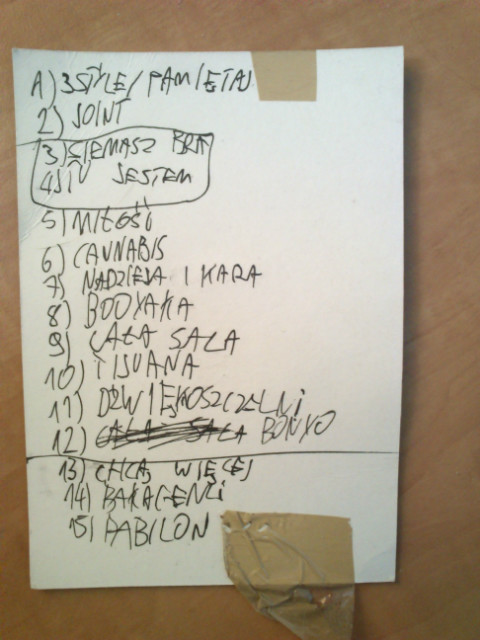 1) 3STYLE/PAMIĘTAJ
2) JOINT
3) SIEMASZ BRA
4) TU JESTEM
5) MIŁOŚĆ
6) CANNABIS
7) NADZIEJA I KARA
8) BOOYAKA
9) CAŁA SALA
10) TIJUANA
11) DŹWIĘKOSZCZELNI
12) CAŁA SALA BONXO
13) CHCĄ WIĘCEJ
14) BAKAGENCI
15) BABILON